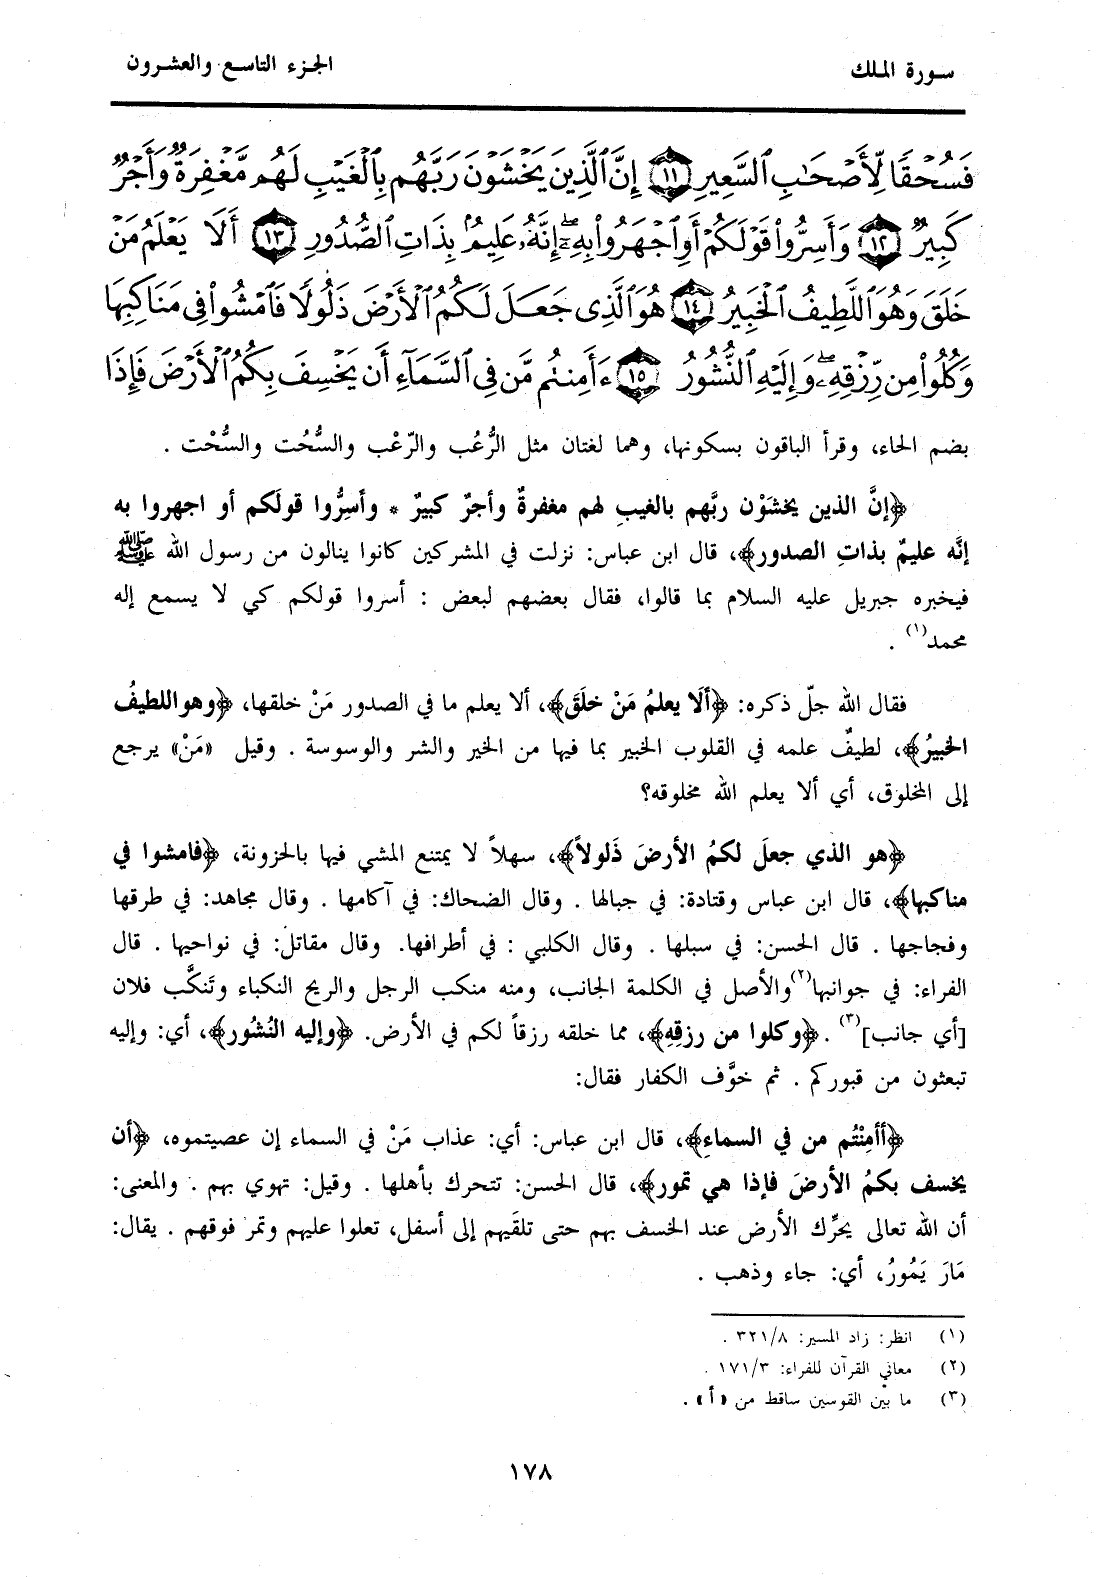 سورة الملك
الجزء التاسع والعشرون
فَسُحْقًا لِّأَصْحَٰبِ ٱلسَّعِيرِ ١١ إِنَّ ٱلَّذِينَ يَخْشَوْنَ رَبَّهُم بِٱلْغَيْبِ لَهُم مَّغْفِرَةٌ وَأَجْرٌ
كَبِيرٌ ١٢ وَأَسِرُّوا۟ قَوْلَكُمْ أَوِ ٱجْهَرُوا۟ بِهِۦٓ ۖ إِنَّهُۥ عَلِيمٌۢ بِذَاتِ ٱلصُّدُورِ ١٣ أَلَا يَعْلَمُ مَنْ
خَلَقَ وَهُوَ ٱللَّطِيفُ ٱلْخَبِيرُ ١٤ هُوَ ٱلَّذِى جَعَلَ لَكُمُ ٱلْأَرْضَ ذَلُولًا فَٱمْشُوا۟ فِى مَنَاكِبِهَا
وَكُلُوا۟ مِن رِّزْقِهِۦ ۖ وَإِلَيْهِ ٱلنُّشُورُ ١٥ ءَأَمِنتُم مَّن فِى ٱلسَّمَآءِ أَن يَخْسِفَ بِكُمُ ٱلْأَرْضَ فَإِذَا
بضم الحاء، وقرأ الباقون بسكونها، وهما لغتان مثل الرُّعُب والرّعْب والسُّحُت والسُّحْت .
﴿إنَّ الذين يخشَوْن ربَّهم بالغيبِ لهم مغفرةٌ وأجرٌ كبيرٌ * وأسِرُّوا قولَكم أو اجهروا به
إنَّه عليمٌ بذاتِ الصدور﴾، قال ابن عباس: نزلت في المشركين كانوا ينالون من رسول الله ﷺ
فيخبره جبريل عليه السلام بما قالوا، فقال بعضهم لبعض : أسروا قولكم كي لا يسمع إله
محمد(١) .
فقال الله جلّ ذكره: ﴿ألَا يعلمُ مَنْ خلَقَ﴾، ألا يعلم ما في الصدور مَنْ خلقها، ﴿وهو اللطيفُ
الخبيرُ﴾، لطيفٌ علمه في القلوب الخبير بما فيها من الخير والشر والوسوسة . وقيل «مَنْ» يرجع
إلى المخلوق، أي ألا يعلم الله مخلوقه؟
﴿هو الذي جعلَ لكمُ الأرضَ ذَلولاً﴾، سهلاً لا يمتنع المشي فيها بالحزونة، ﴿فامشوا في
مناكبها﴾، قال ابن عباس وقتادة: في جبالها . وقال الضحاك: في آكامها . وقال مجاهد: في طرقها
وفجاجها . قال الحسن: في سبلها . وقال الكلبي : في أطرافها. وقال مقاتل: في نواحيها . قال
الفراء: في جوانبها(٢) والأصل في الكلمة الجانب، ومنه منكب الرجل والريح النكباء وتَنكَّب فلان
[أي جانب](٣) . ﴿وكلوا من رزقِهِ﴾، مما خلقه رزقاً لكم في الأرض. ﴿وإليه النُشُور﴾، أي: وإليه
تبعثون من قبوركم . ثم خوَّف الكفار فقال:
﴿أأمِنْتُم من في السماءِ﴾، قال ابن عباس: أي: عذاب مَنْ في السماء إن عصيتموه، ﴿أن
يخسف بكمُ الأرضَ فإذا هي تمور﴾، قال الحسن: تتحرك بأهلها . وقيل: تهوي بهم . والمعنى:
أن الله تعالى يحرِّك الأرض عند الخسف بهم حتى تلقَيهم إلى أسفل، تعلوا عليهم وتمر فوقهم . يقال:
مَارَ يَمُورُ، أي: جاء وذهب .
(١) انظر: زاد المسير: ٣٢١/٨ .
(٢) معاني القرآن للفراء: ١٧١/٣ .
(٣) ما بين القوسين ساقط من «أ» .
١٧٨